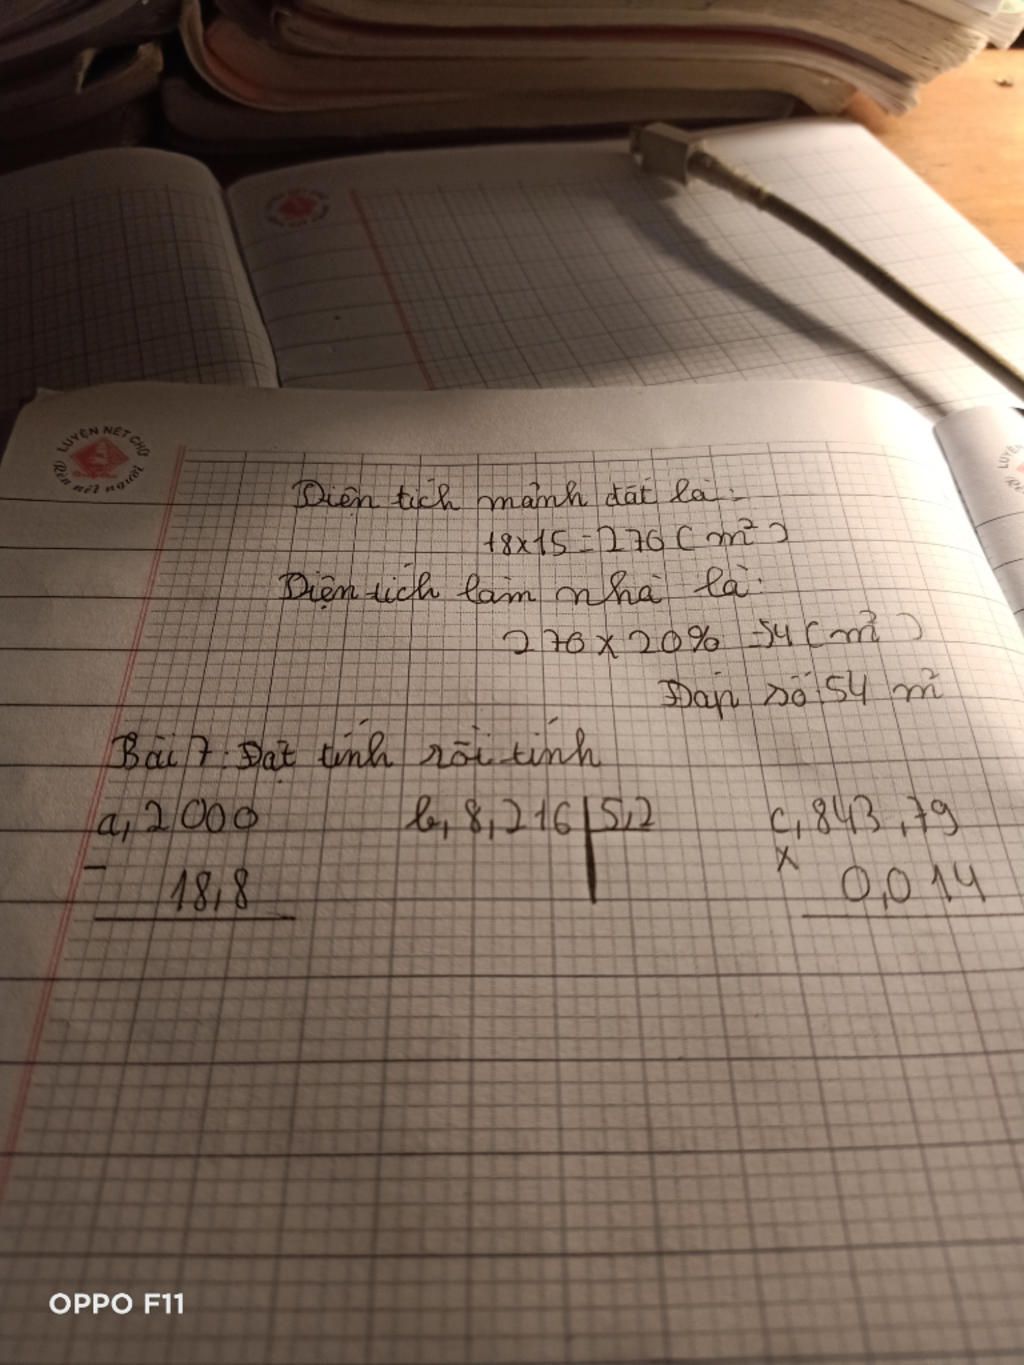 LUYỆN NÉT CHỮ
Rèn nết người
Diện tích mảnh đất là:
18x15=270(m²)
Diện tích làm nhà là:
270x20%=54(m²)
Đáp số:54 m²
Bài 7: Đặt tính rồi tính
a, 2000 b, 8,216 5,2 c, 843,79
- 18,8 x 0,014
OPPO F11